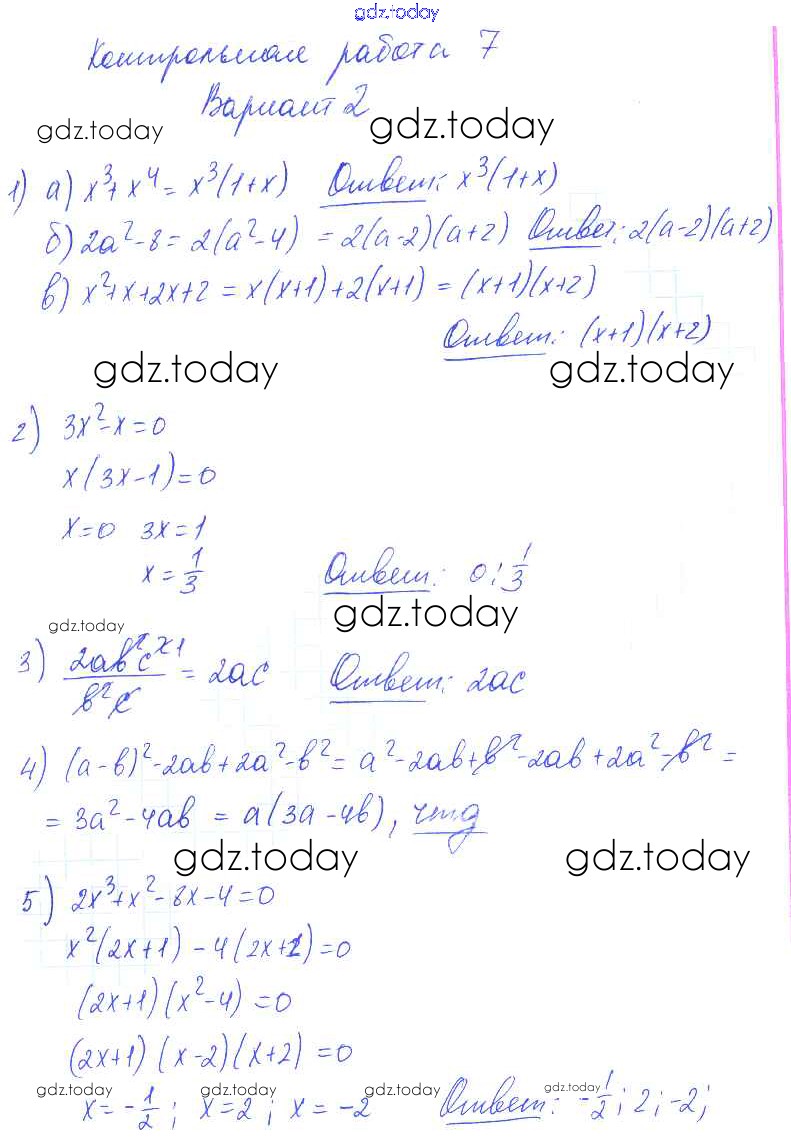 gdz.today
Контрольная работа 7
Вариант 2
gdz.today gdz.today
1) а) x³+x⁴ = x³(1+x) Ответ: x³(1+x)
б) 2a²-8 = 2(a²-4) = 2(a-2)(a+2) Ответ: 2(a-2)(a+2)
в) x²+x+2x+2 = x(x+1)+2(x+1) = (x+1)(x+2)
Ответ: (x+1)(x+2)
gdz.today gdz.today
2) 3x²-x=0
x(3x-1)=0
x=0 3x=1
x=1/3 Ответ: 0; 1/3
gdz.today
gdz.today
3) 2ab²c^x1 / b²c = 2ac Ответ: 2ac
4) (a-b)²-2ab+2a²-b² = a²-2ab+b²-2ab+2a²-b² =
= 3a²-4ab = a(3a-4b), чтд
gdz.today gdz.today
5) 2x³+x²-8x-4=0
x²(2x+1)-4(2x+1)=0
(2x+1)(x²-4)=0
(2x+1)(x-2)(x+2)=0
gdz.today gdz.today gdz.today gdz.today
x=-1/2; x=2; x=-2 Ответ: -1/2; 2; -2;